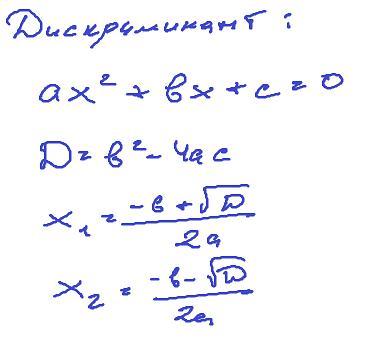 Дискриминант:
ax² + bx + c = 0
D = b² - 4ac
x₁ = (-b + √D) / 2a
x₂ = (-b - √D) / 2a